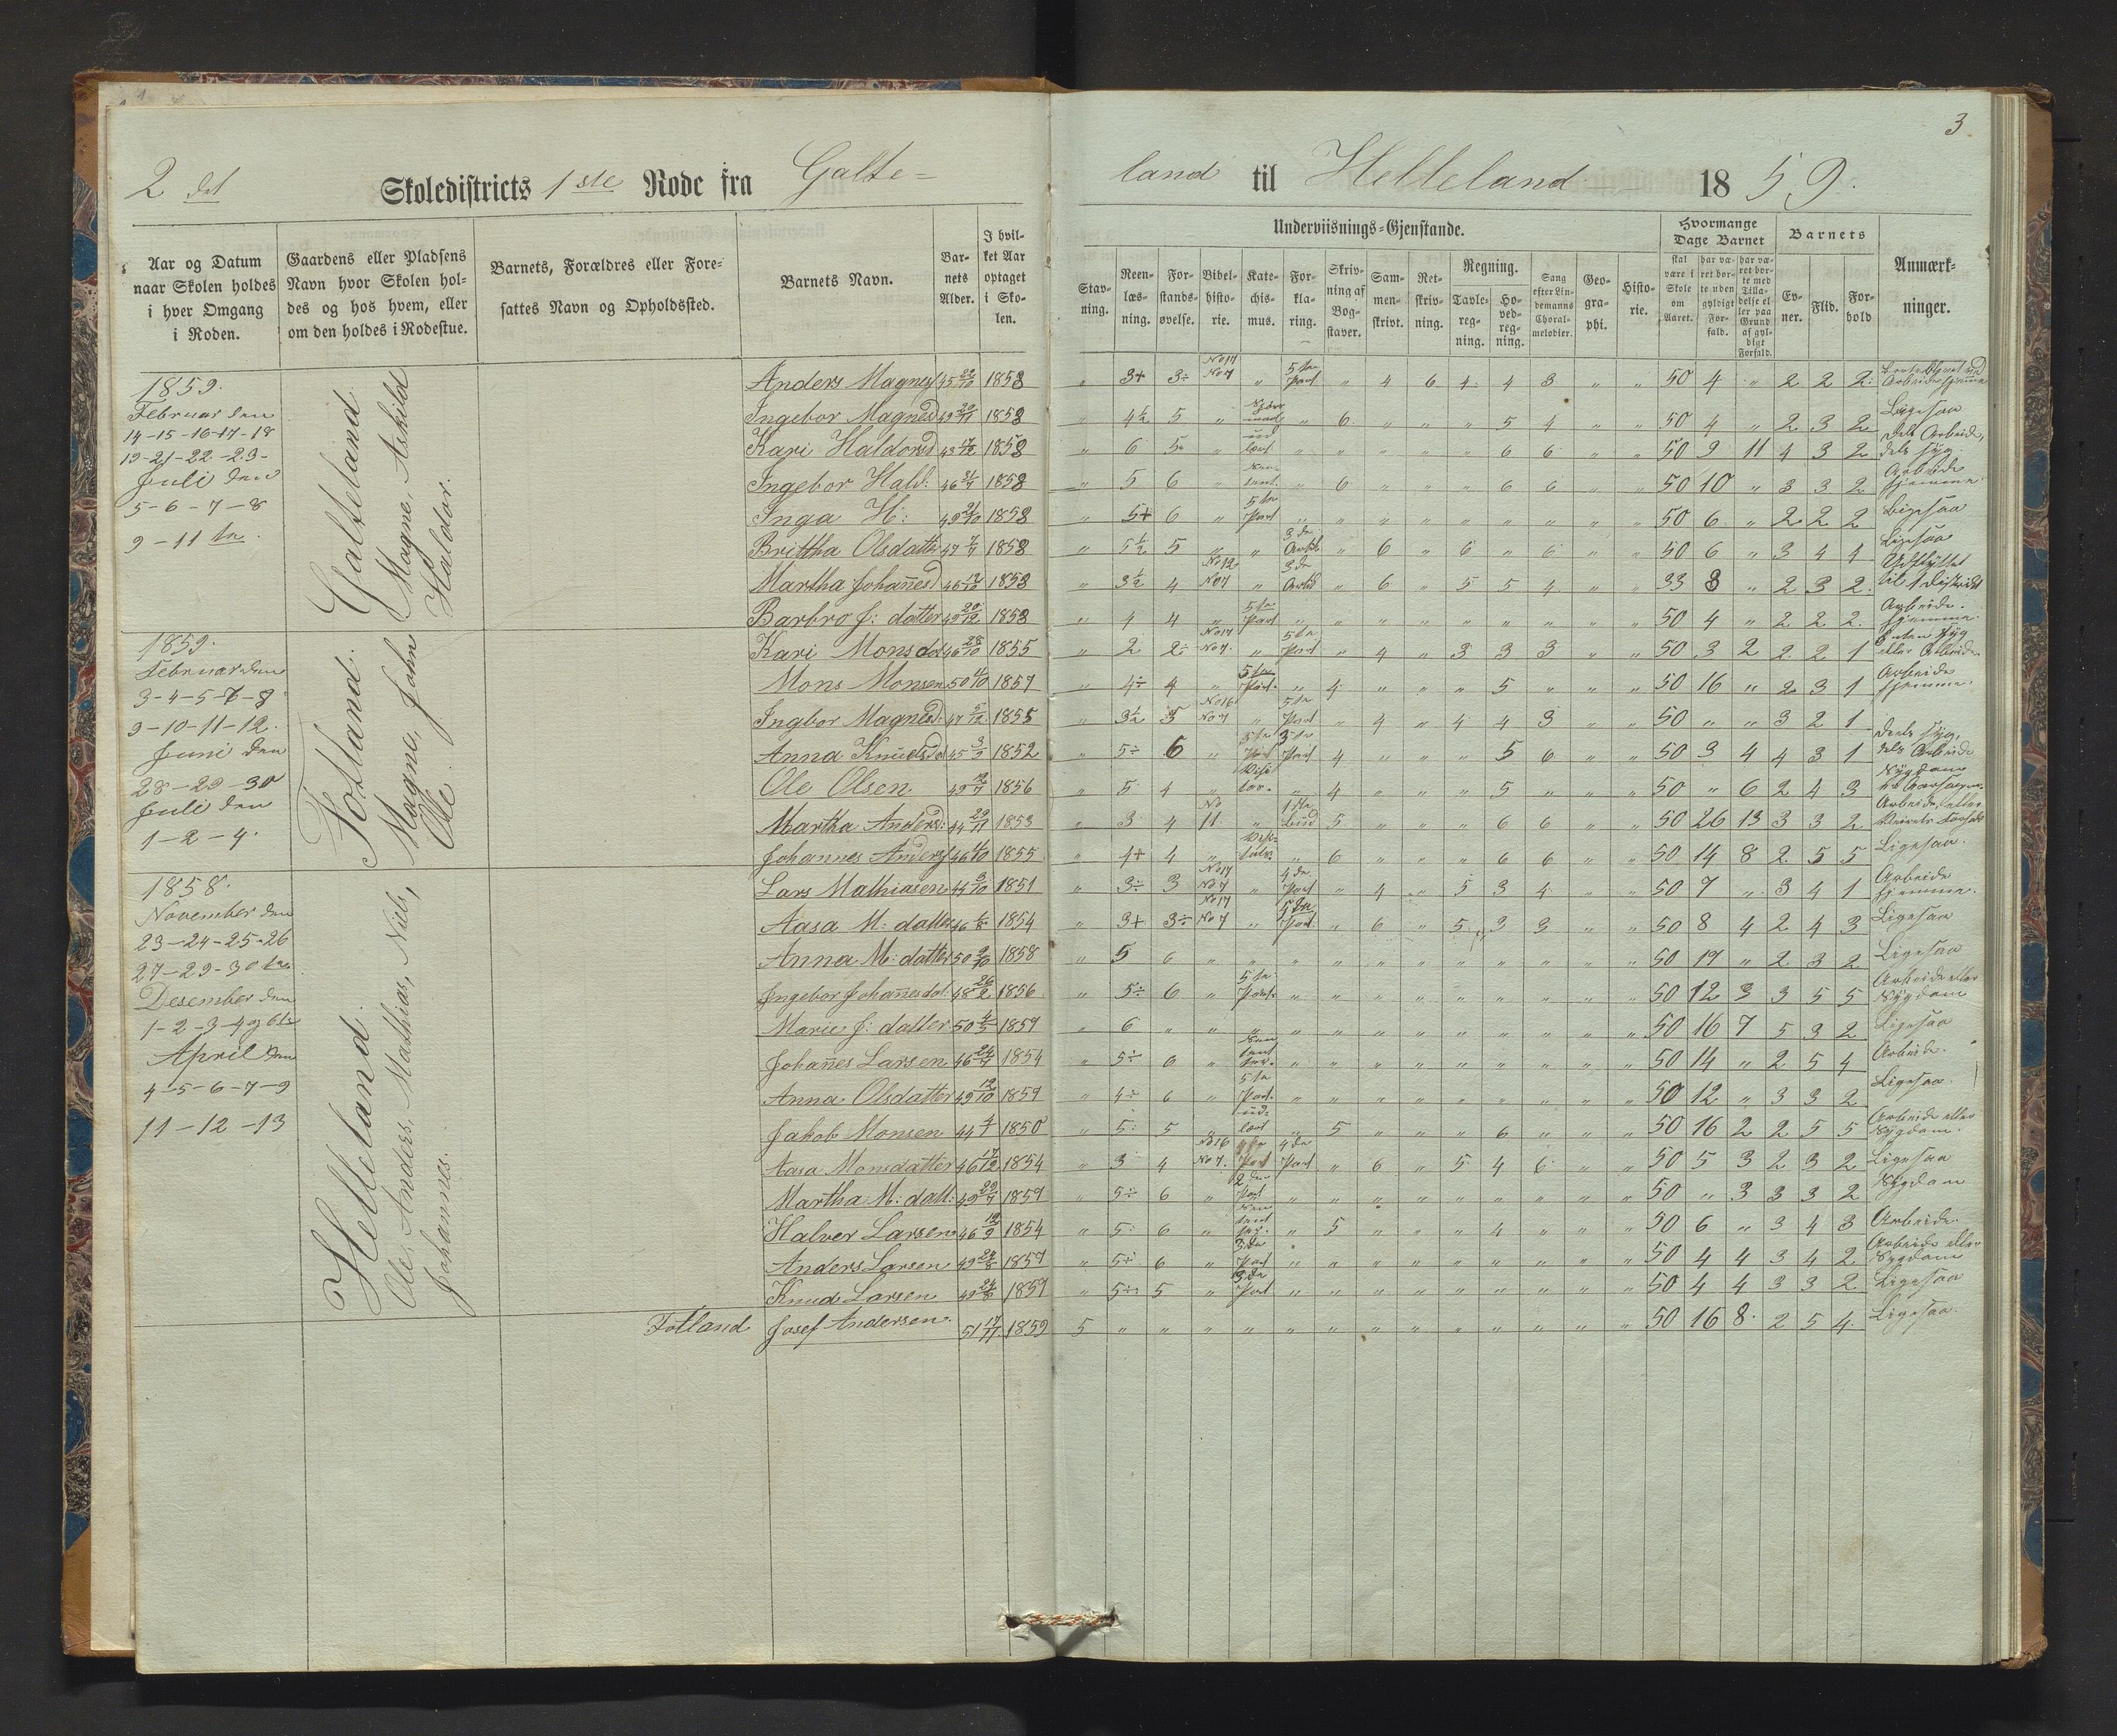 3
2 det Skoledistricts 1ste Rode fra Galte=
land til Helleland 1859.
Aar og Datum naar Skolen holdes i hver Omgang i Roden.
Gaardens eller Pladsens Navn hvor Skolen holdes og hos hvem, eller om den holdes i Rodestue.
Barnets, Forældres eller Foresattes Navn og Opholdssted.
Barnets Navn.
Barnets Alder.
I hvilket Aar optaget i Skolen.
Underviisnings=Gjenstande.
Stavning.
Reenlæsning.
Forstandsøvelse.
Bibelhistorie.
Katechismus.
Forklaring.
Skrivning af Bogstaver.
Sammenskrivt.
Retskrivning.
Regning.
Tavleregning.
Hovedregning.
Sang efter Lindemanns Choralmelodier.
Geographi.
Historie.
Hvormange Dage Barnet
skal være i Skole om Aaret.
har været borte uden gyldigt Forfald.
har været borte med Tilladelse eller paa Grund af gyldigt Forfald.
Barnets
Evner.
Flid.
Forhold
Anmærkninger.
1859.
Februar den
14-15-16-17-18
19-21-22-23-
Juli den
5-6-7-8
9-11te.
Galteland.
Magne, Askild
Haldor.
Anders Magnes 45 22/10 1853 " 3+ 3÷ No 17 No 7 " 5te Part " 4 6 4 4 3 " " 50 4 " 2 2 2
Ingebor Magnesd 49 20/11 1858 " 4½ 5 " " 6 " " " 5 4 " " 50 4 " 2 3 2 Ligesaa
Kari Haldorsd 1858 " 6 5 " " " " " " 6 6 " " 50 9 11 4 3 2 dels Arbeide, dels syg.
Ingebor Hald: 1858 " 5 6 " " 6 " " " 6 6 " " 50 10 " 3 3 2 Arbeide hjemme.
Inga H: 1858 " 5+ 6 " 5te Part " " " " " " " " " 50 6 " 2 2 2 Ligesaa
Brittha Olsdatter 47 1858 " 5½ 5 " " 3de Artik " 6 " 6 " 6 " " 50 6 " 3 4 4 Ligesaa
Martha Johannesd 46 12/10 1853 " 3½ 4 No 12 No 7 " 3de Artik " 6 " 5 5 4 " " 33 8 " 2 3 2 Udflyttet til 1 Distrikt
Barbro J: datter 49 20/12 1858 " 4 4 " 5te Part " " " " " " " " " 50 4 " 2 2 2 Arbeide hjemme.
1859.
Februar den
3-4-5-7-8
9-10-11-12.
Juni den
28-29-30
Juli den
1-2-4.
Fotland.
Magne, John
Ole.
Kari Monsdd 46 28/10 1855 " 2 2÷ No 17 No 7. " 5te Part " 4 " 3 3 3 " " 50 3 2 2 2 1 Enten syg eller Arbeide.
Mons Monsen 50 4/10 1857 " 4÷ 4 " 5te Part. " 4 " " " 5 " " " 50 16 " 2 3 1 Arbeide hjemme.
Ingbor Magnesd: 47 5/12 1855 " 3½ 3 No 16 No 7 " 5te Part " 4 " 4 4 3 " " 50 " " 3 2 1
Anna Knudsd 45 3/9 1852 " 5÷ 6 " 5te Part 3te Part 4 " " " 5 6 " " 50 3 4 4 3 1 deels syg, dels Arbeide
Ole Olsen 1856 " 5 4 " " 4 " " " 5 " " " 50 " 6 2 4 3 Sygdom
Martha Anders: 44 29/11 1853 " 3 4 No 11 " 1ste bud 5 " " " 6 6 " " 50 26 13 3 3 2 Arbeide, eller
Johannes Anders 46 4/10 1855 " 4+ 4 " " 6 " " " 6 6 " " 50 14 8 2 5 5 Ligesaa.
1858.
November den
23-24-25-26
27-29-30te
Desember den
1-2-3-4 og 6te
April den
4-5-6-7-9
11-12-13
Helleland.
Ole, Anders, Mathias, Niels,
Johannes.
Lars Mathiasen 44 3/10 1851 " 3÷ 3 No 17 No 7 " 4de Part " 4 " 5 3 4 " " 50 7 " 3 4 1 Arbeide hjemme.
Aasa M: datter 46 6/8 1854 " 3+ 3÷ No 17 No 7 " 4de Part " 6 " 5 3 3 " " 50 8 4 2 4 3 Ligesaa
Anna M: datter 50 9/10 1858 " 5 6 " " " " " " " " " " " 50 19 " 2 3 2 Ligesaa
Ingebor Johannesdat: 48 26/2 1856 " 5÷ 6 " 5te Part. " " " " " " " " " 50 12 3 3 5 5 Arbeide eller Sygdom
Marie J: datter 50 4/5 1857 " 6 " " " " " " " " " " " " 50 16 7 5 3 2 Ligesaa
Johannes Larsen 46 24/7 1854 " 5÷ 6 " " " " " " " " " " 50 14 " 2 5 4 Arbeide.
Anna Olsdatter 49 12/10 1857 " 4÷ 6 " 5te Part. " " " " " " " " " 50 12 " 3 3 2 Ligesaa.
Jakob Monsen 44 4/7 1850 " 5: 5 " udlært " 5 " " " 6 " " " 50 16 2 2 5 5 Arbeide eller Sygdom.
Aasa Monsdatter 46 17/12 1854 " 3 4 No 16 No 7. Part 4de Part " 6 " 5 4 6 " " 50 5 3 2 3 2 Ligesaa
Martha M: datt: 49 29/7 1857 " 5÷ 6 " 2den Part " " " " " " " " " 50 " 3 3 3 2 Sygdom
Halver Larsen 46 12/9 1854 " 5: 6 " " 5 " " " 4 " " " 50 6 " 3 4 3 Arbeide.
Anders Larsen 49 24/8 1857 " 5÷ 6 " 3de Part " " " " " " " " " 50 4 4 3 4 2 Arbeide eller Sygdom
Knud Larsen 49 24/8 1857 " 5÷ 5 " 3de Part " " " " " " " " " 50 4 4 3 3 2 Ligesaa
Fotland Josef Andersen. 51 17/11 1859 5 " " " " " " " " " " " " " 50 16 8. 2 5 4. Ligesaa.